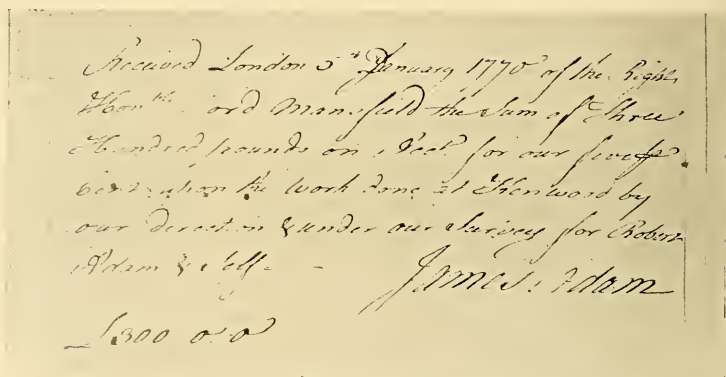 Received London 5th January 1770 of the Right
Honble Lord Mansfield the Sum of Three
Hundred pounds on Acct for our five
Cent upon the work done at Kenwood by
our direction & under our Survey for Robert
Adam & Self.
James Adam
£300 0:0